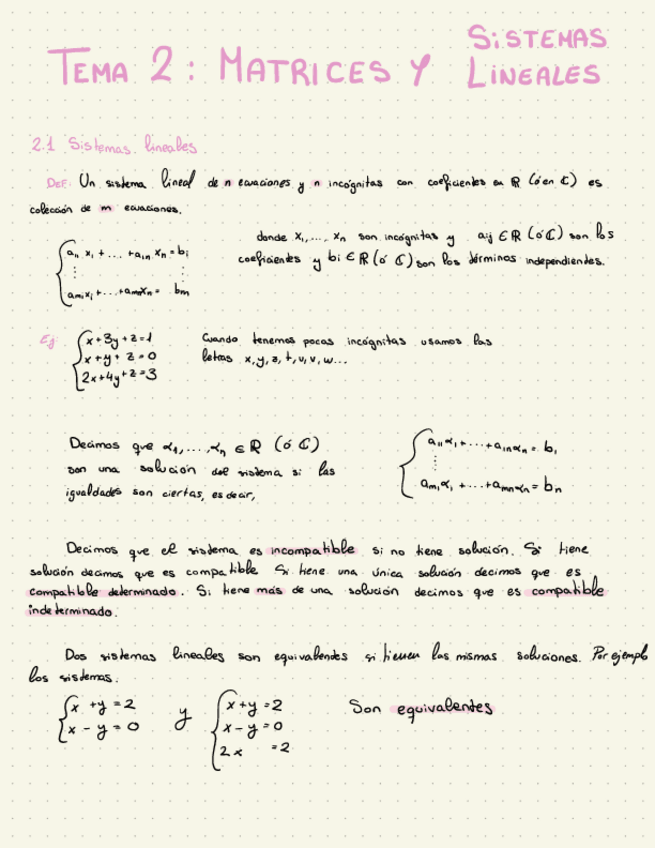 TEMA 2: MATRICES Y SISTEMAS LINEALES
2.1 Sistemas lineales
DEF: Un sistema lineal de n ecuaciones y n incógnitas con coeficientes en ℝ (ó en ℂ) es
colección de m ecuaciones.
a₁₁ x₁ + ... + a₁ₙ xₙ = b₁
⋮ ⋮
aₘ₁x₁ + ... + aₘₙxₙ = bₘ
donde x₁, ..., xₙ son incógnitas y aᵢⱼ ∈ ℝ (ó ℂ) son los
coeficientes y bᵢ ∈ ℝ (ó ℂ) son los términos independientes.
Ej:
x + 3y + z = 1
x + y + z = 0
2x + 4y + z = 3
Cuando tenemos pocas incógnitas usamos las
letras x, y, z, t, u, v, w...
Decimos que α₁, ..., αₙ ∈ ℝ (ó ℂ)
son una solución del sistema si las
igualdades son ciertas, es decir,
a₁₁α₁ + ... + a₁ₙαₙ = b₁
⋮
aₘ₁α₁ + ... + aₘₙαₙ = bₙ
Decimos que el sistema es incompatible si no tiene solución. Si tiene
solución decimos que es compatible Si tiene una única solución decimos que es
compatible determinado. Si tiene más de una solución decimos que es compatible
indeterminado.
Dos sistemas lineales son equivalentes si tienen las mismas soluciones. Por ejemplo
los sistemas.
x + y = 2
x - y = 0
y
x + y = 2
x - y = 0
2x = 2
Son equivalentes